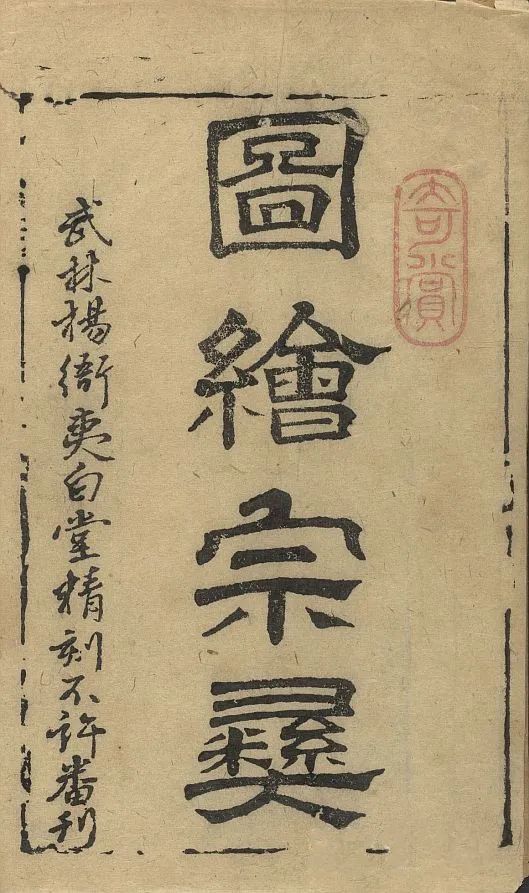 奇賞
圖繪宗彝
武林楊衙夷白堂精刻不許番刊